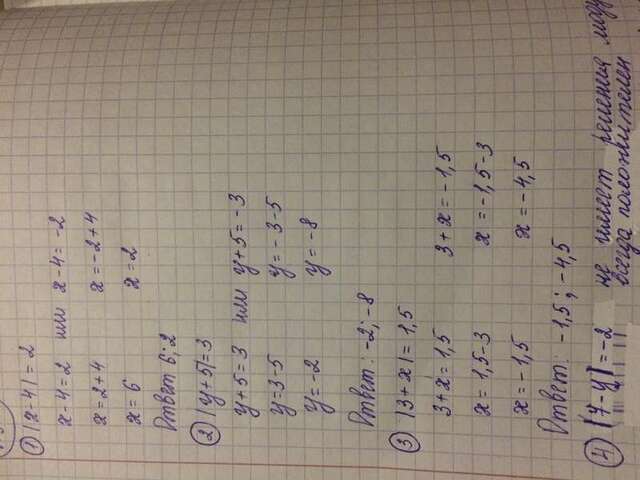 1) |x-4|=2
x-4=2 или x-4=-2
x=2+4 x=-2+4
x=6 x=2
Ответ 6; 2
2) |y+5|=3
y+5=3 или y+5=-3
y=3-5 y=-3-5
y=-2 y=-8
Ответ: -2; -8
3) |3+x|=1,5
3+x=1,5 3+x=-1,5
x=1,5-3 x=-1,5-3
x=-1,5 x=-4,5
Ответ: -1,5; -4,5
4) |7-y|=-2 не имеет решения моду
всегда положителен